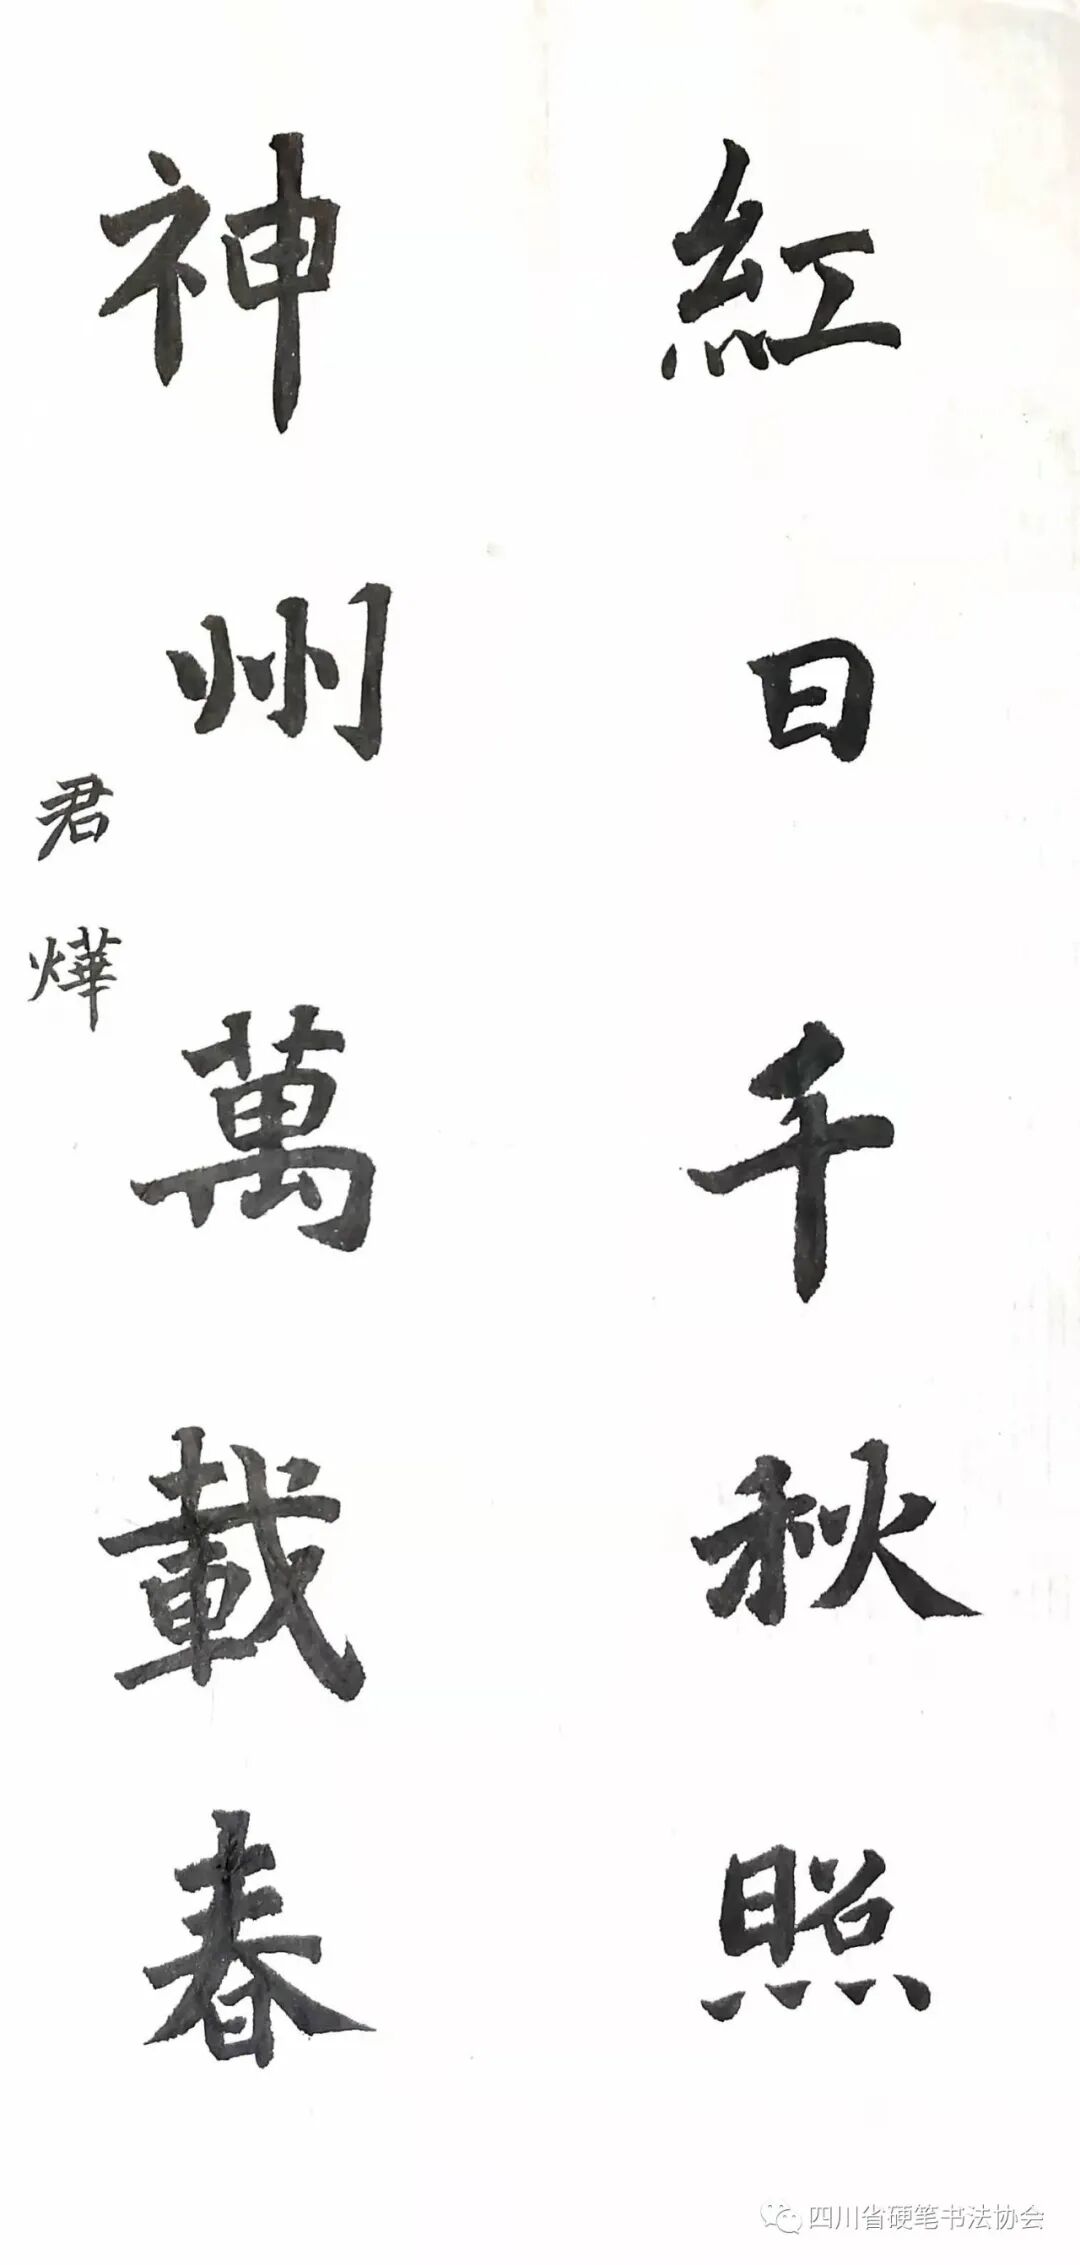 紅日千秋照
神州萬載春
君燁
四川省硬笔书法协会